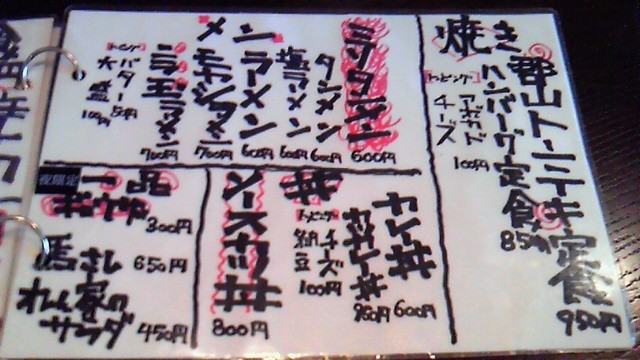 焼き
郡山トンテキ定食
950円
ハンバーグ定食
850円
トッピング
アボカド
チーズ
100円
メン
ミソタンメン
600円
タンメン
600円
塩ラーメン
600円
ラーメン
600円
モヤシタンメン
700円
700円
トッピング
バター
50円
大盛
100円
丼
カレー丼
600円
カツカレー丼
950円
トッピング
チーズ
納豆
100円
ソースカツ丼
800円
夜限定
一品
300円
馬さし
650円
れん家の
サラダ
450円